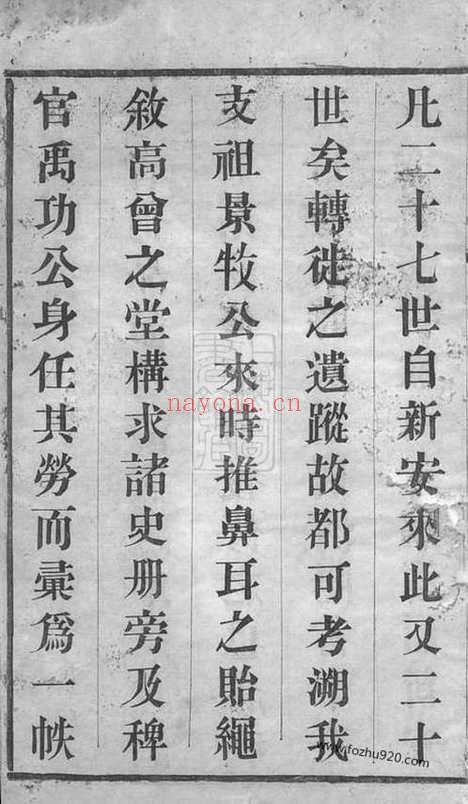 凡二十七世自新安來此又二十
世矣轉徙之遺蹤故都可考溯我
支祖景牧公來時推鼻耳之貽繩
敘高曾之堂構求諸史册旁及稗
官禹功公身任其勞而彙爲一帙
nayona.cn
www.fozhu920.com